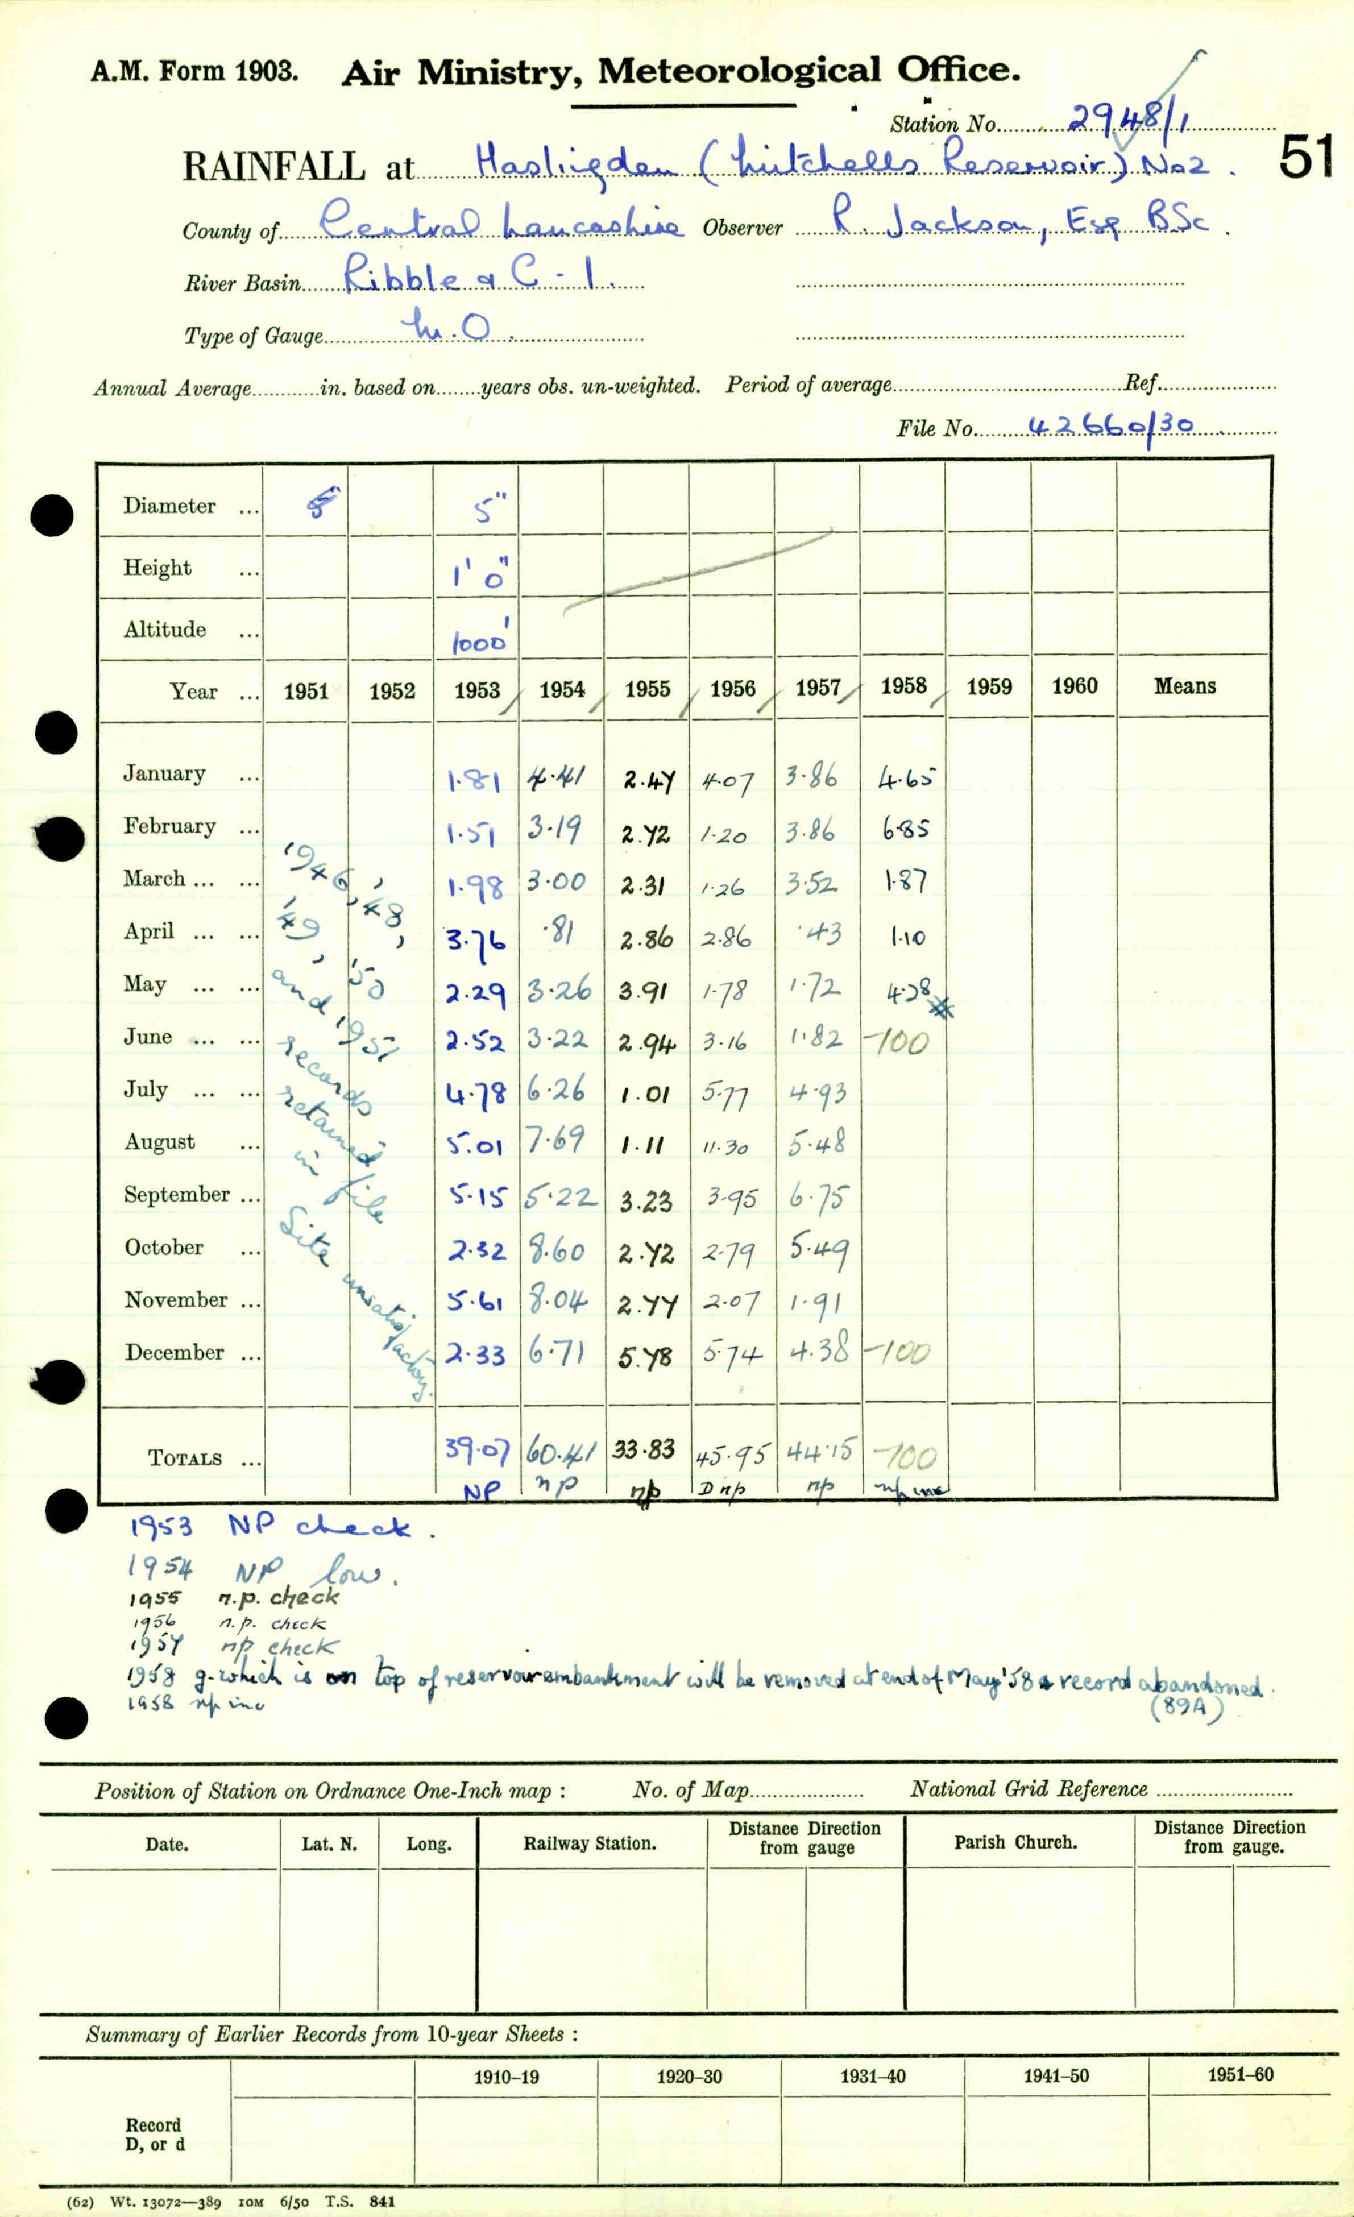 A.M. Form 1903. Air Ministry, Meteorological Office.
Station No. 2948/1
51
RAINFALL at Haslingden (Mitchells Reservoir) No2.
County of Central Lancashire Observer R. Jackson, Esq BSc.
River Basin Ribble & C - 1.
Type of Gauge M.O.
Annual Average............in. based on........years obs. un-weighted. Period of average............Ref............
File No. 42660/30
Diameter ... 5" 5"
Height ... 1' 0"
Altitude ... 1000'
Year ... 1951 1952 1953 1954 1955 1956 1957 1958 1959 1960 Means
January ... 1.81 4.41 2.47 4.07 3.86 4.65
February ... 1.51 3.19 2.72 1.20 3.86 6.85
March ... ... 1.98 3.00 2.31 1.26 3.52 1.87
April ... ... 3.76 .81 2.86 2.86 .43 1.10
May ... ... 2.29 3.26 3.91 1.78 1.72 4.28
June ... ... 2.52 3.22 2.94 3.16 1.82 -100
July ... ... 4.78 6.26 1.01 5.77 4.93
August ... 5.01 7.69 1.11 11.30 5.48
September ... 5.15 5.22 3.23 3.95 6.75
October ... 2.32 8.60 2.72 2.79 5.49
November ... 5.61 8.04 2.77 2.07 1.91
December ... 2.33 6.71 5.78 5.74 4.38 -100
1946, '48,
'49, '50
and 1951
records
retained
in file
Site unsatisfactory.
TOTALS ... 39.07 60.41 33.83 45.95 44.15 -100
NP np np D np np np inc
1953 NP check.
1954 NP low.
1955 n.p. check
1956 n.p. check
1957 np check
1958 g. which is on top of reservoir embankment will be removed at end of May '58 & record abandoned.
(89A)
1958 np inc
Position of Station on Ordnance One-Inch map : No. of Map............ National Grid Reference ............
Date. Lat. N. Long. Railway Station. Distance Direction from gauge Parish Church. Distance Direction from gauge.
Summary of Earlier Records from 10-year Sheets :
1910–19 1920–30 1931–40 1941–50 1951–60
Record
D, or d
(62) Wt. 13072—389 10M 6/50 T.S. 841